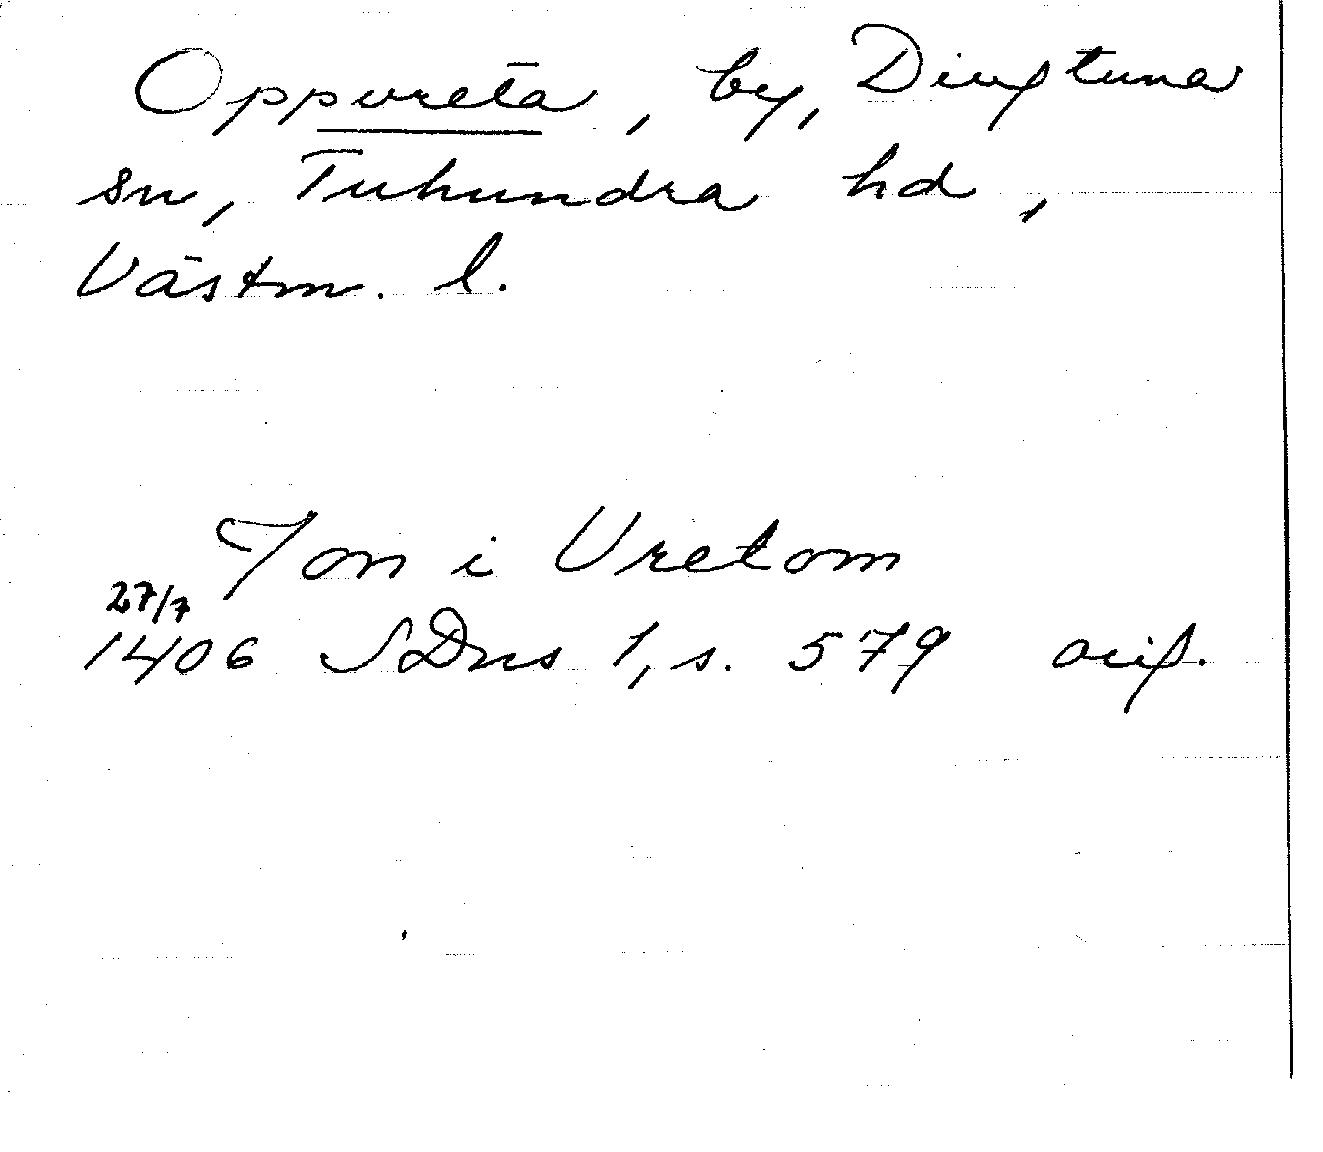 Oppvreta, by, Dingtuna
sn, Tuhundra hd,
Västm. l.
Jon i Vretom
27/7
1406 SDns 1, s. 579 orig.